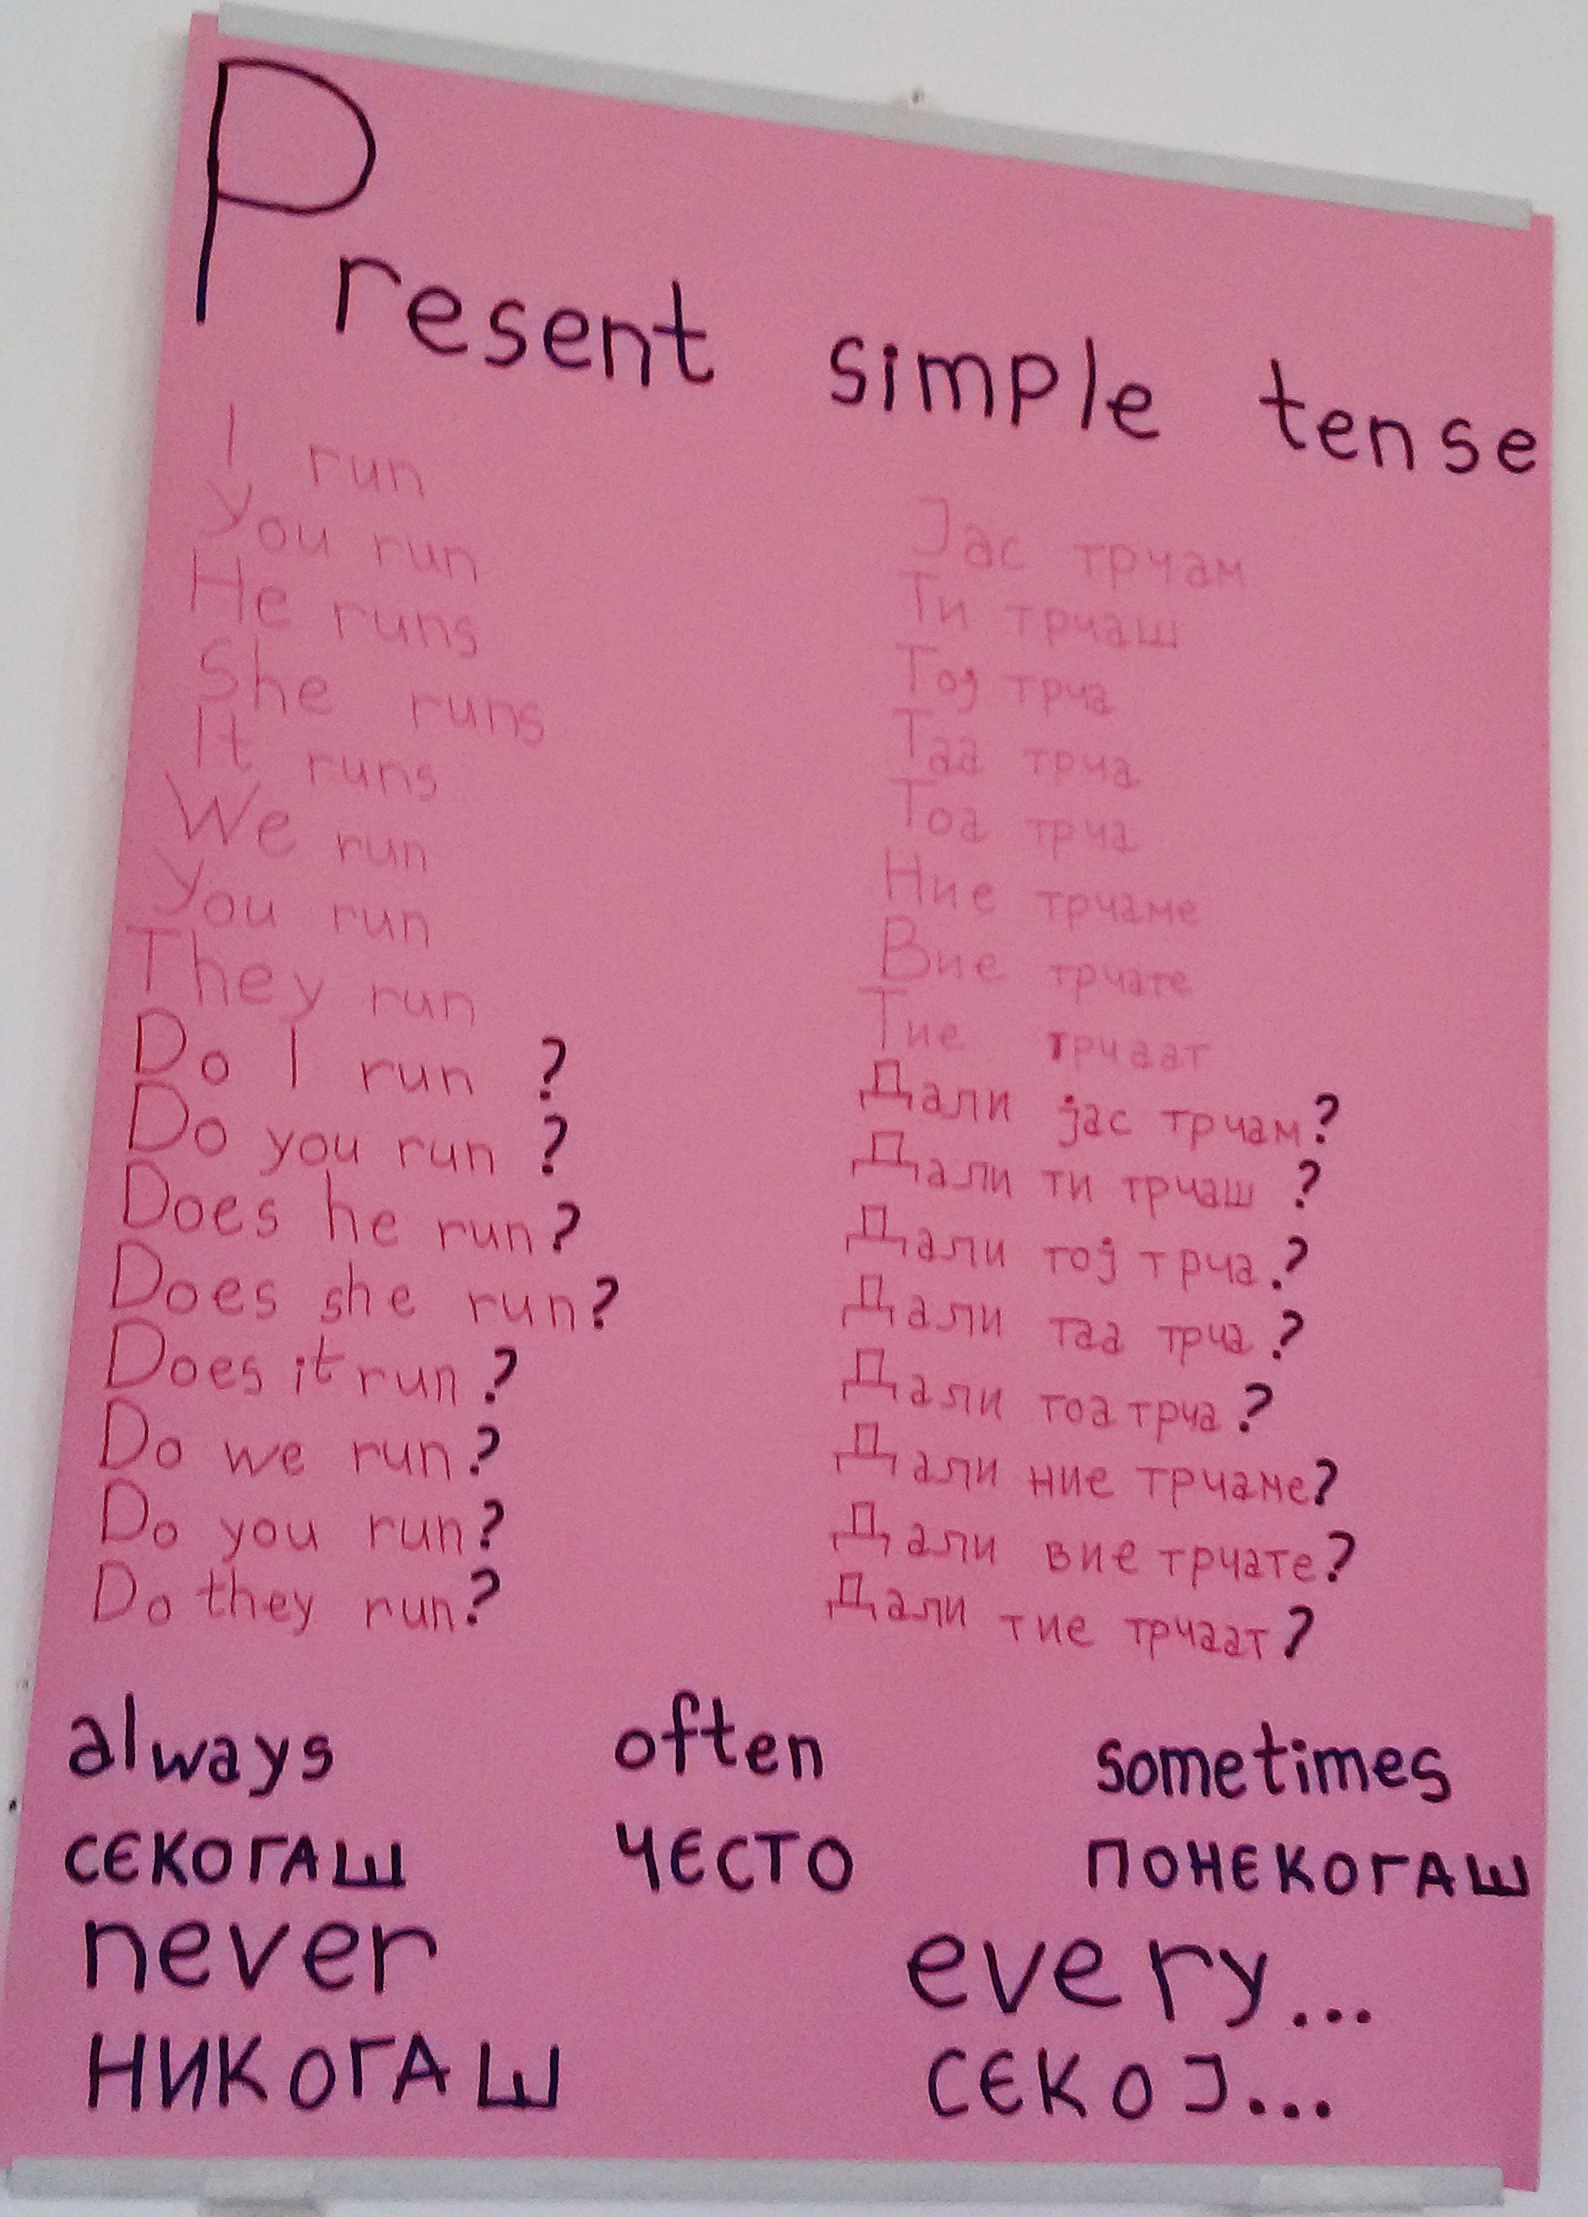 Present simple tense
I run
You run
He runs
She runs
It runs
We run
You run
They run
Do I run ?
Do you run ?
Does he run?
Does she run?
Does it run?
Do we run?
Do you run?
Do they run?
Јас трчам
Ти трчаш
Тој трча
Таа трча
Тоа трча
Ние трчаме
Вие трчате
Тие трчаат
Дали јас трчам?
Дали ти трчаш ?
Дали тој трча?
Дали таа трча?
Дали тоа трча?
Дали ние трчаме?
Дали вие трчате?
Дали тие трчаат?
always often sometimes
СЕКОГАШ ЧЕСТО ПОНЕКОГАШ
never every...
НИКОГАШ СЕКОЈ...